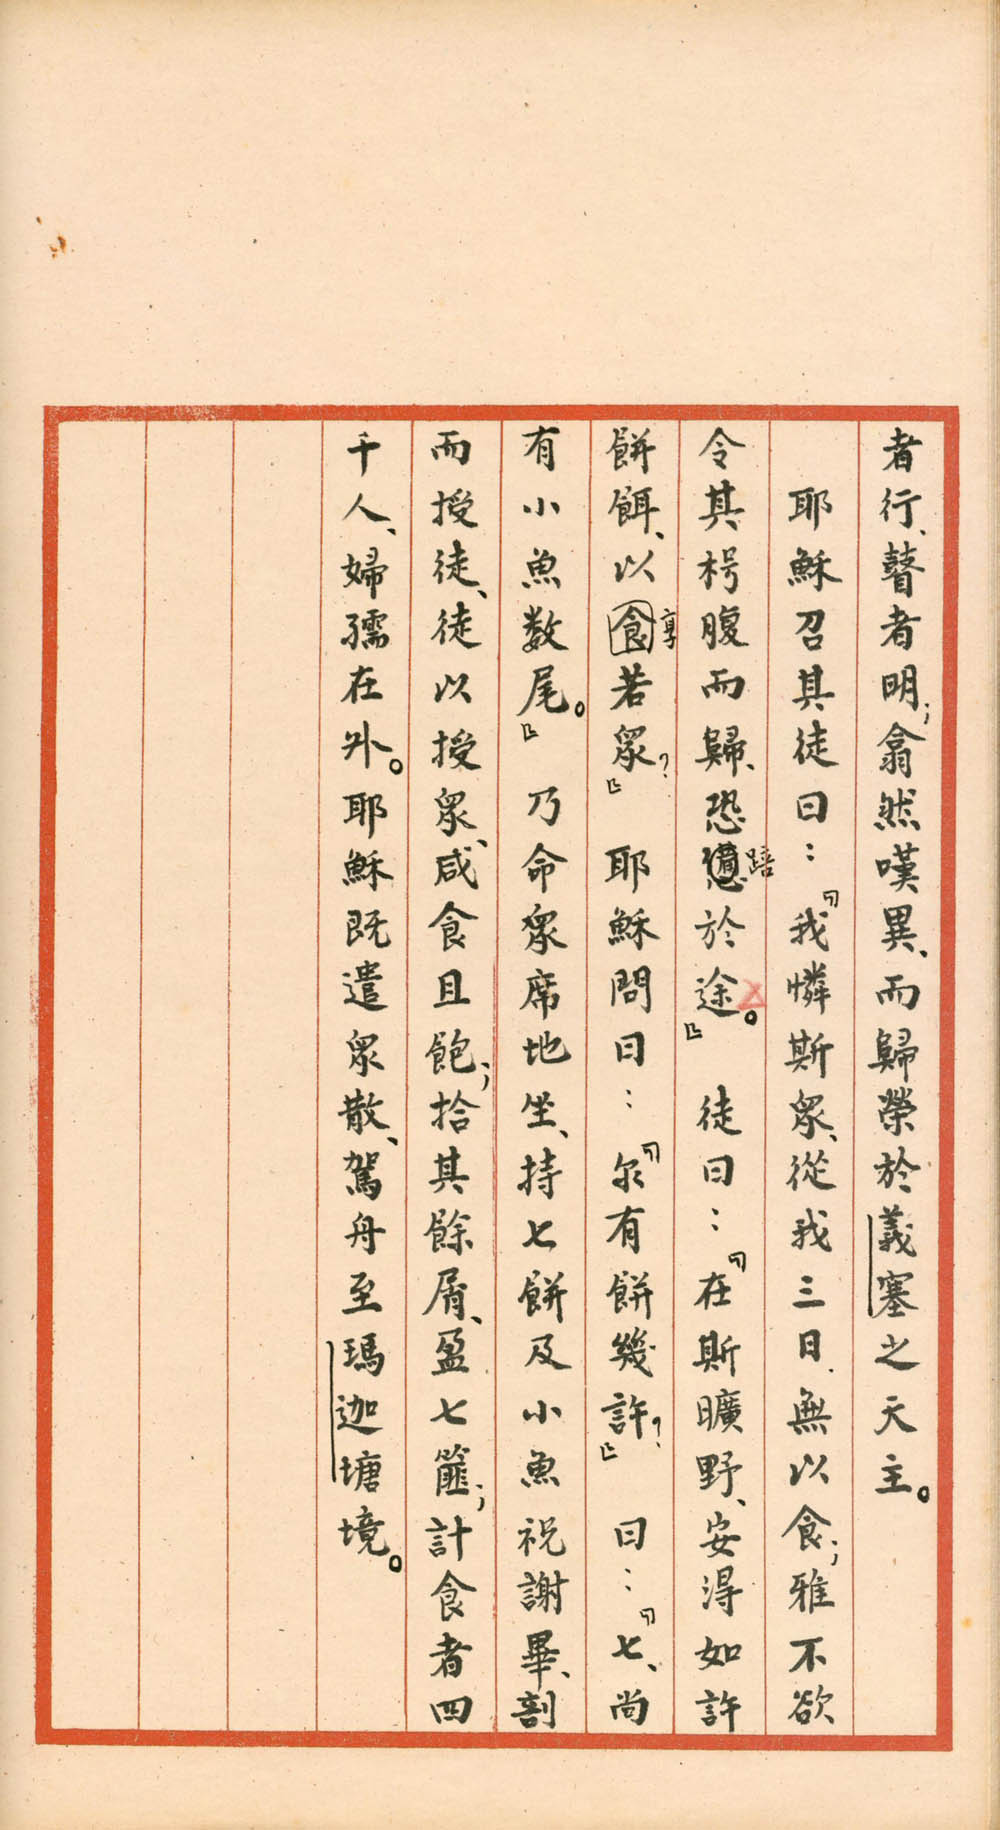 者行、瞽者明；翕然嘆異、而歸榮於義塞之天主。
耶穌召其徒曰：「我憐斯眾、從我三日、無以食；雅不欲
令其枵腹而歸、恐踣於途。」徒曰：「在斯曠野、安得如許
餅餌、以食享若眾？」耶穌問曰：「尔有餅幾許？」曰：「七、尚
有小魚数尾。」乃命眾席地坐、持七餅及小魚祝謝畢、剖
而授徒、徒以授眾、咸食且飽；拾其餘屑、盈七篚；計食者四
千人、婦孺在外。耶穌既遣眾散、駕舟至瑪迦塘境。